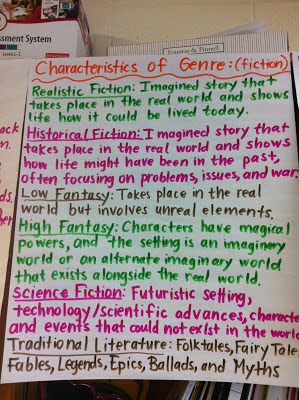 ssment System
Fountas & Pinnell
Characteristics of Genre: (fiction)
Realistic Fiction: Imagined story that
takes place in the real world and shows
life how it could be lived today.
Historical Fiction: Imagined story that
takes place in the real world and shows
how life might have been in the past,
often focusing on problems, issues, and war.
Low Fantasy: Takes place in the real
world but involves unreal elements.
High Fantasy: Characters have magical
powers, and the setting is an imaginery
world or an alternate imaginary world
that exists alongside the real world.
Science Fiction: Futuristic setting,
technology/scientific advances, characte
and events that could not exist in the world
Traditional Literature: Folktales, Fairy Tales
Fables, Legends, Epics, Ballads, and Myths